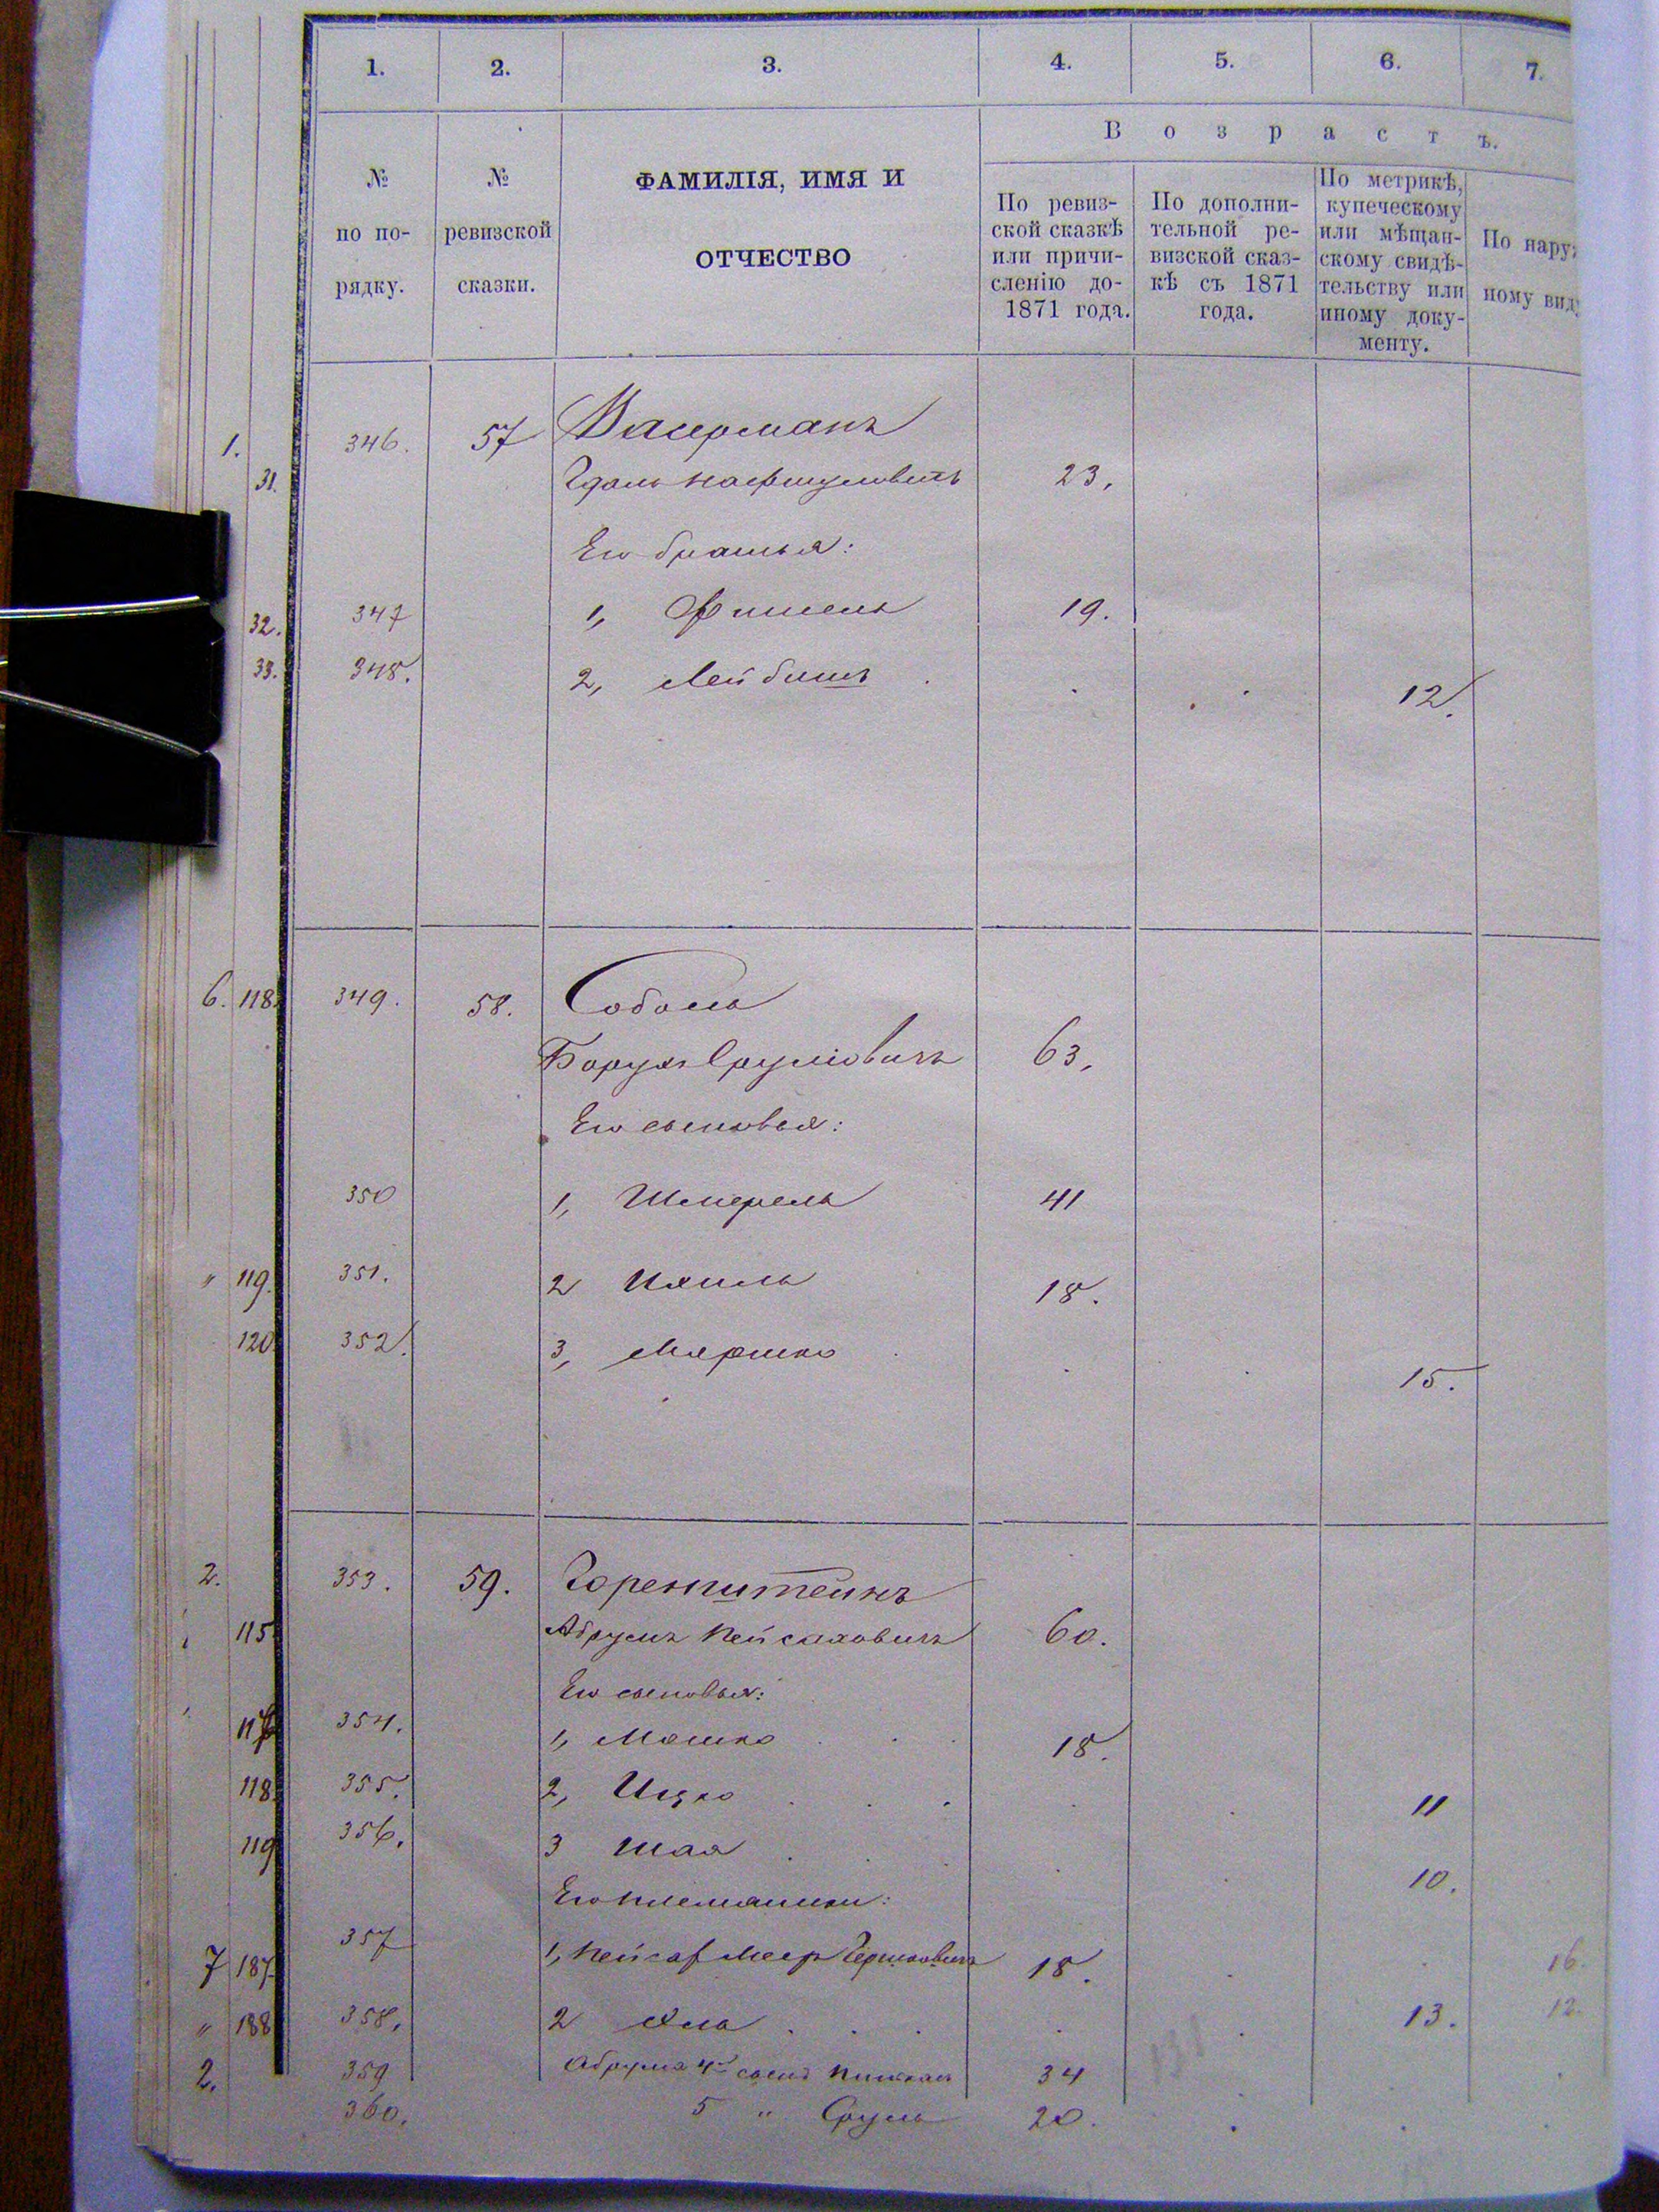 1. 2. 3. 4. 5. 6. 7.
В о з р а с т ъ.
№ по по- рядку.
№ ревизской сказки.
ФАМИЛІЯ, ИМЯ И
ОТЧЕСТВО
По ревиз-
ской сказкѣ
или причи-
сленію до-
1871 года.
По дополни-
тельной ре-
визской сказ-
кѣ съ 1871
года.
По метрикѣ,
купеческому
или мѣщан-
скому свидѣ-
тельству или
иному доку-
менту.
По нару
ному вид
1. 346. 57 Васерманъ
31. Гдаль 23.
Его братья:
32. 347 1, Фишель 19.
33. 348. 2, Лейбишъ 12.
6. 118. 349. 58. Соболь
Борухъ Сруліовичъ 63.
Его сыновья:
350 1, Шмерель 41
" 119. 351. 2 Ихиль 18.
120. 352. 3, Мошко 15.
2. 353. 59. Горенштейнъ
115 Абрумъ Пейсаховичъ 60.
Его сыновья:
117 354. 1, Мошко 18.
118. 355. 2, Ицко 11
119 356. 3 Шая 10.
Его племянники:
7 187. 357 1, Пейсах Меер Гершковичъ 18. 16.
" 188 358. 2 13. 12.
2. 359 Абрума 4й сынъ 34
360. 5 " Сруль 20.